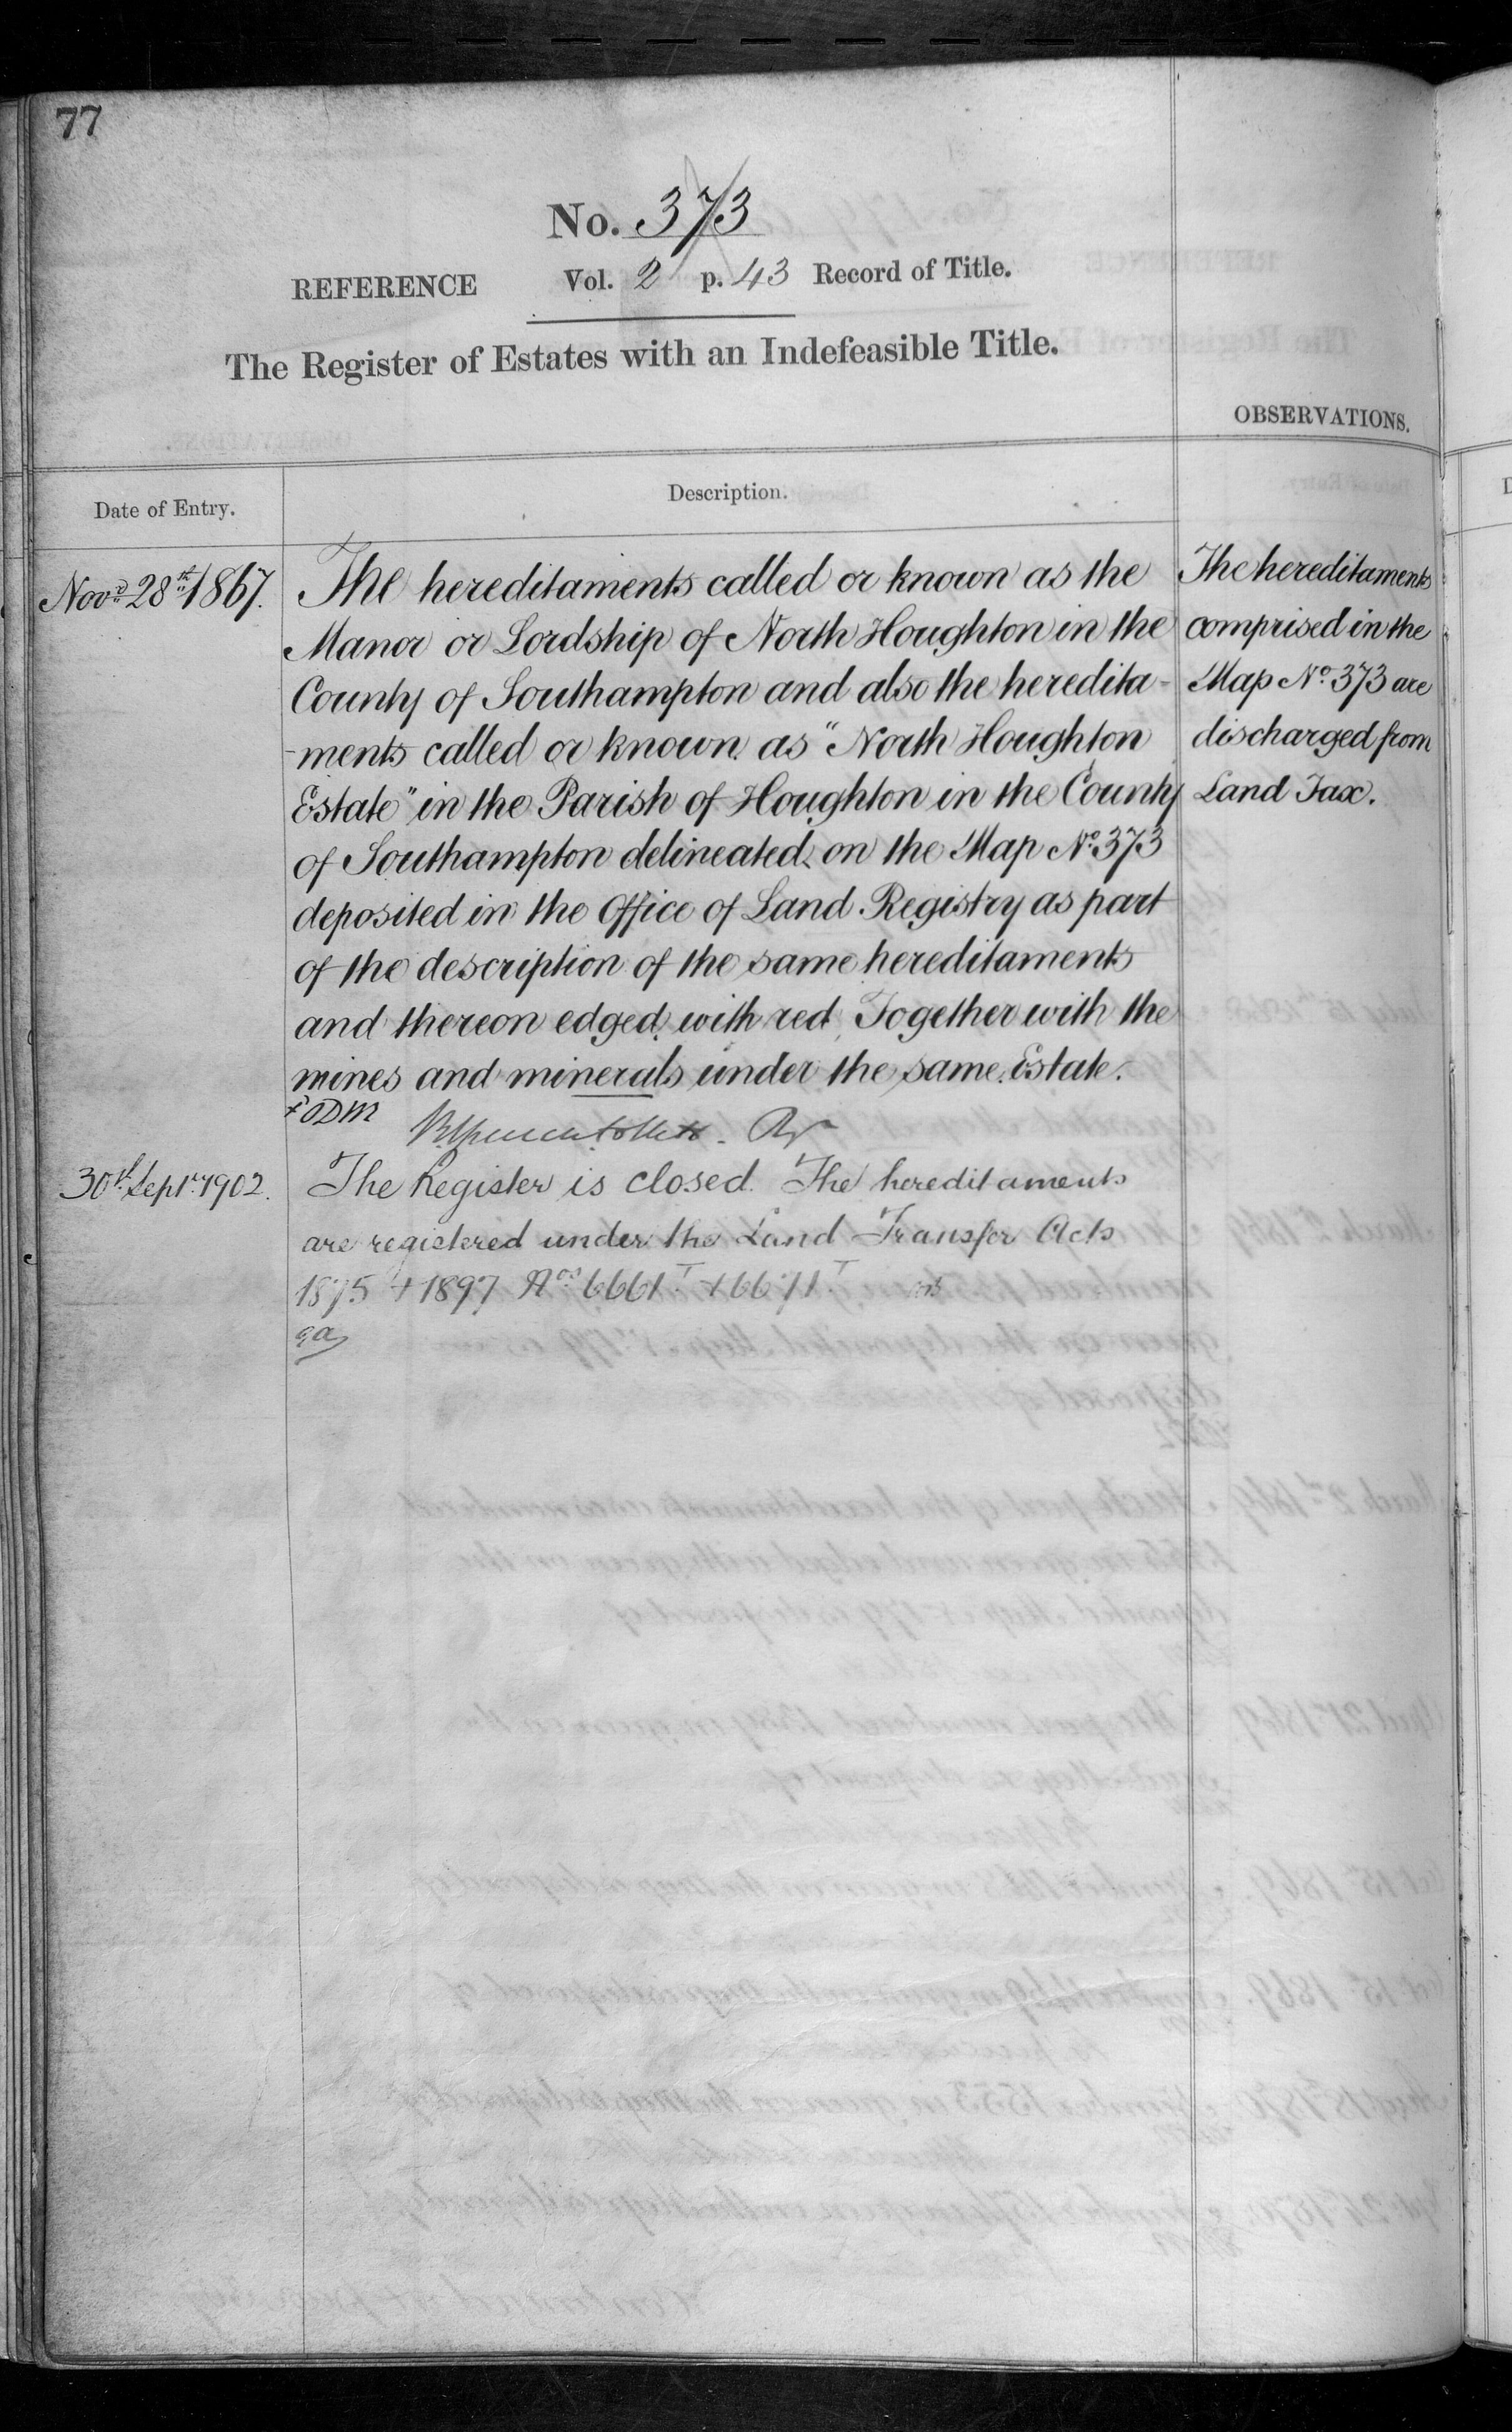 77
No. 373
REFERENCE Vol. 2 p. 43 Record of Title.
The Register of Estates with an Indefeasible Title.
OBSERVATIONS.
Date of Entry.
Description.
Nov.r 28th 1867.
The hereditaments called or known as the
Manor or Lordship of North Houghton in the
County of Southampton and also the heredita-
-ments called or known as "North Houghton
Estate" in the Parish of Houghton in the County
of Southampton delineated on the Map No. 373
deposited in the Office of Land Registry as part
of the description of the same hereditaments
and thereon edged with red, Together with the
mines and minerals under the same Estate.
The hereditaments
comprised in the
Map No. 373 are
discharged from
Land Tax.
30th Sept. 1902.
The Register is closed. The hereditaments
are registered under the Land Transfer Acts
1875 + 1897 Nos 6661 T. + 6671 T.